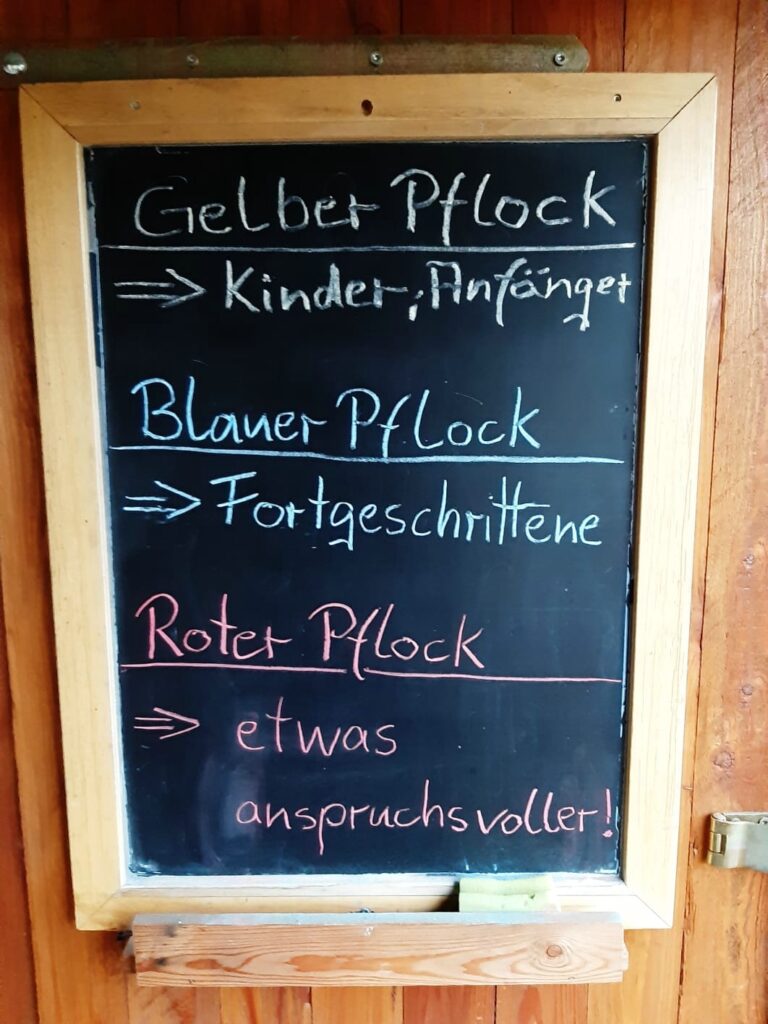 Gelber Pflock
⇒ Kinder, Anfänger
Blauer Pflock
⇒ Fortgeschrittene
Roter Pflock
⇒ etwas
anspruchsvoller!